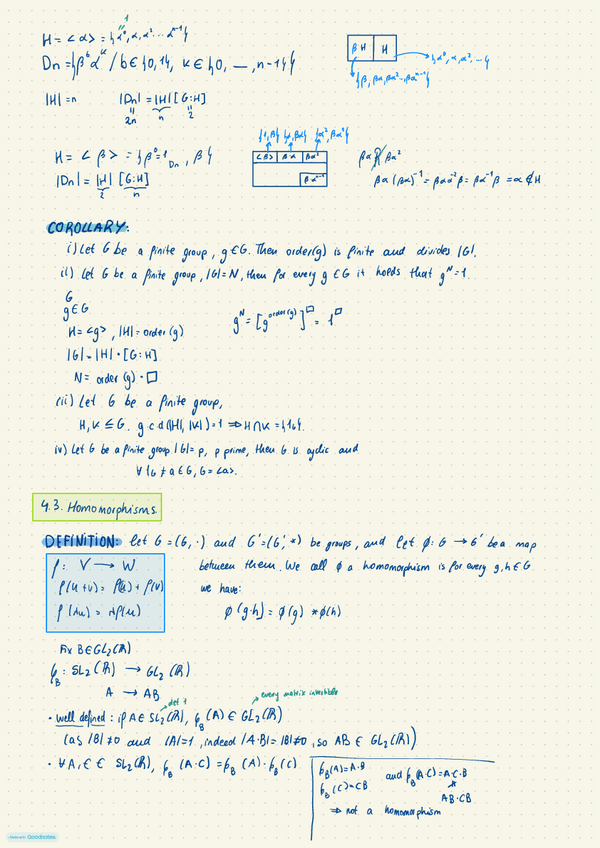 1
H = < α > = { α⁰, α, α² ... αⁿ⁻¹ }
Dn = { βᵇ αᵏ / b ∈ {0,1}, k ∈ {0, __, n-1} }
βH H
{ α⁰, α, α², -- }
{ β, βα, βα² -- βαⁿ⁻¹ }
|H| = n |Dn| = |H| [G:H]
2n n 2
{1, β} {α, βα} {α², βα²}
H = < β > = { β⁰ = 1_Dn, β }
<β> βα βα²
βαⁿ⁻¹
βα R βα²
|Dn| = |H| [G:H]
2 n
βα (βα²)⁻¹ = βαα⁻²β = βα⁻¹β = α ∉ H
COROLLARY:
i) Let G be a finite group, g ∈ G. Then order(g) is finite and divides |G|.
ii) Let G be a finite group, |G| = N, then for every g ∈ G it holds that gᴺ = 1.
G
g ∈ G
H = <g>, |H| = order(g)
gᴺ = [g^order(g)]^□ = 1^□
|G| = |H| · [G:H]
N = order(g) · □
iii) Let G be a finite group,
H, K ≤ G. g.c.d(|H|, |K|) = 1 ⇒ H ∩ K = {1G}.
iv) Let G be a finite group |G| = p, p prime, then G is cyclic and
∀ 1G ≠ a ∈ G, G = <a>.
4.3. Homomorphisms.
DEFINITION: let G = (G, ·) and G' = (G', *) be groups, and let ϕ: G → G' be a map
between them. We call ϕ a homomorphism is for every g, h ∈ G
we have:
ϕ(g·h) = ϕ(g) * ϕ(h)
f: V → W
f(u+v) = f(u) + f(v)
f(λu) = λf(u)
Fix B ∈ GL₂(ℝ)
φ_B : SL₂(ℝ) → GL₂(ℝ)
A → AB
det 1
every matrix invertible
· well defined: if A ∈ SL₂(ℝ), φ_B(A) ∈ GL₂(ℝ)
(as |B| ≠ 0 and |A| = 1, indeed |A·B| = |B| ≠ 0, so AB ∈ GL₂(ℝ))
· ∀ A, C ∈ SL₂(ℝ), φ_B(A·C) = φ_B(A) · φ_B(C)
φ_B(A) = A·B and φ_B(A·C) = A·C·B
φ_B(C) = CB
AB·CB
⇒ not a homomorphism
Made with Goodnotes